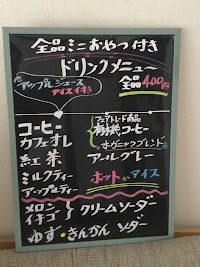 全品ミニおやつ付き
ドリンクメニュー
全品400円
アップルジュース
アイス付き
コーヒー
カフェオレ
紅茶
ミルクティー
アップルティー
フェアトレード商品
有機コーヒー
オーガニックブレンド
アールグレー
ホットかアイス
メロン
イチゴ
クリームソーダー
ゆず・きんかんソーダー